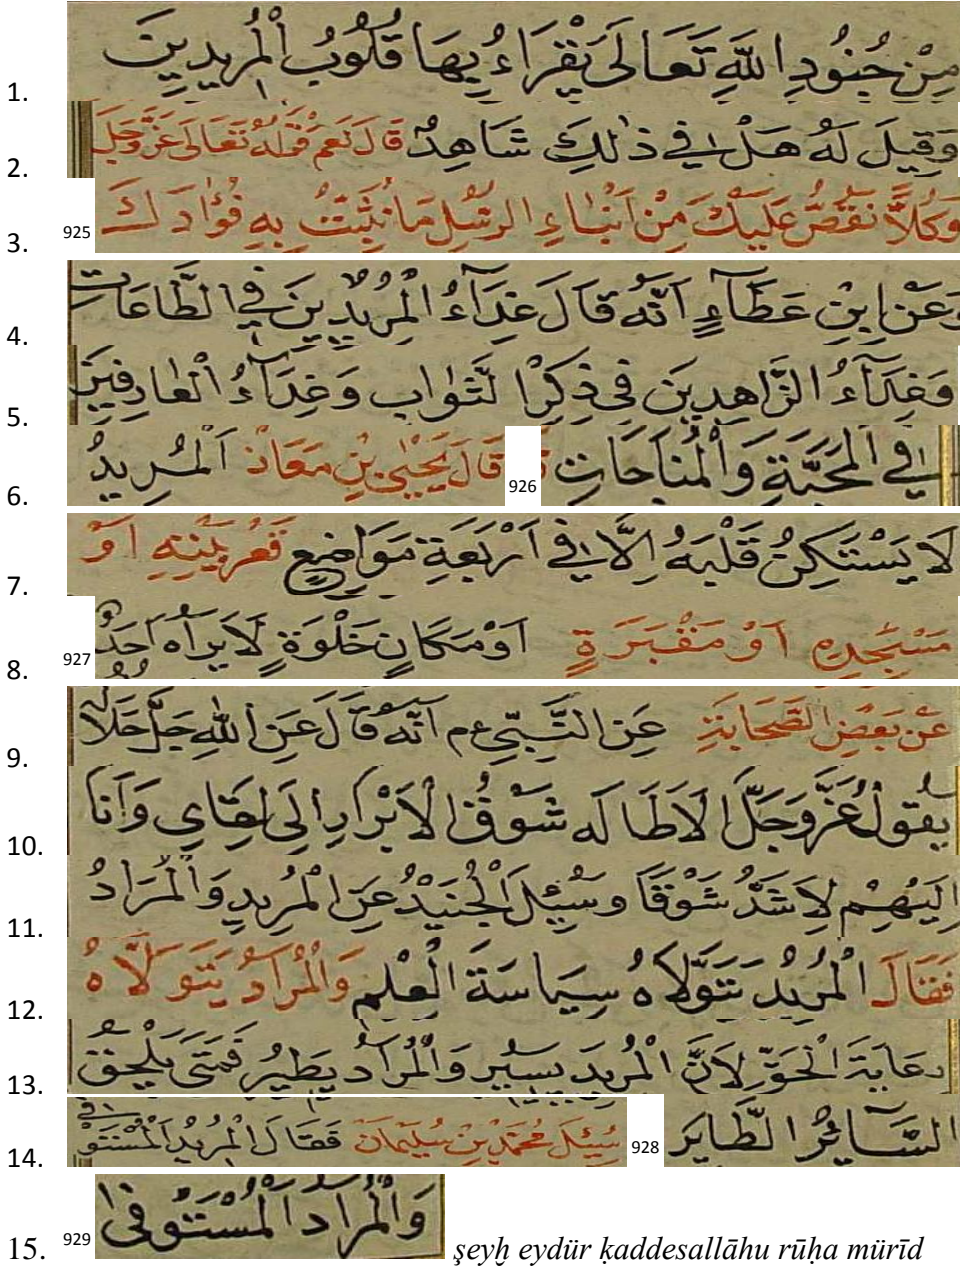 1. مِنْ جُنُودِ اللّٰهِ تَعَالَى يَقْرَاءُ بِهَا قُلُوبُ الْمُرِيدِينَ
2. وَقِيلَ لَهُ هَلْ فِي ذٰلِكَ شَاهِدٌ قَالَ نَعَمْ قَوْلُهُ تَعَالَى عَزَّوَجَلَّ
3. وَكُلًّا نَقُصُّ عَلَيْكَ مِنْ اَنْبَاءِ الرُّسُلِ مَا نُثَبِّتُ بِهِ فُؤَادَكَ 925
4. وَعَنْ اِبْنِ عَطَآءٍ اَنَّهُ قَالَ غِدَآءُ الْمُرِيدِينَ فِي الطَّاعَاتِ
5. وَغِدَآءُ الزَّاهِدِينَ فِي ذِكْرِ الثَّوَابِ وَغِدَآءُ الْعَارِفِينَ
6. فِي الْمَحَبَّةِ وَالْمُنَاجَاتِ 926 قَالَ يَحْيَى بْنِ مَعَاذ اَلْمُرِيدُ
7. لَا يَسْتَكِنُّ قَلْبَهُ اِلَّا فِي اَرْبَعَةِ مَوَاضِعِ قَعْرِ بَيْتِهِ اَوْ
8. مَسْجِدِهِ اَوْ مَقْبَرَةٍ اَوْ مَكَانٍ خَلْوَةٍ لَا يَرَاهُ اَحَدٌ 927
9. عَنْ بَعْضِ الصَّحَابَةِ عَنِ النَّبِيِّ عم اَنَّهُ قَالَ عَنِ اللّٰهِ جَلَّ جَلَالُهُ
10. يَقُولُ عَزَّ وَجَلَّ اَلَا طَالَ شَوْقُ الْاَبْرَارِ اِلَى لِقَاي وَاَنَا
11. اِلَيْهِمْ لَاَشَدُّ شَوْقًا وَسُئِلَ الْجُنَيْدُ عَنِ الْمُرِيدِ وَالْمُرَادُ
12. فَقَالَ الْمُرِيدُ تَتَوَلَّاهُ سِيَاسَةَ الْعِلْمِ وَالْمُرَادُ يَتَوَلَّاهُ
13. رِعَايَةَ الْحَقِّ لِاَنَّ الْمُرِيدَ يَسِيرُ وَالْمُرَادُ يَطِيرُ فَمَتَى يَلْحَقُ
14. السَّائِرُ الطَّايِرَ 928 سُئِلَ مُحَمَّدِ بْنِ سُلَيْمَانَ فَقَالَ الْمُرِيدُ الْمُسْتَوْفِي
15. وَالْمُرَادُ الْمُسْتَوْفَى 929 şeyḫ eydür ḳaddesallāhu rūḥa mürīd